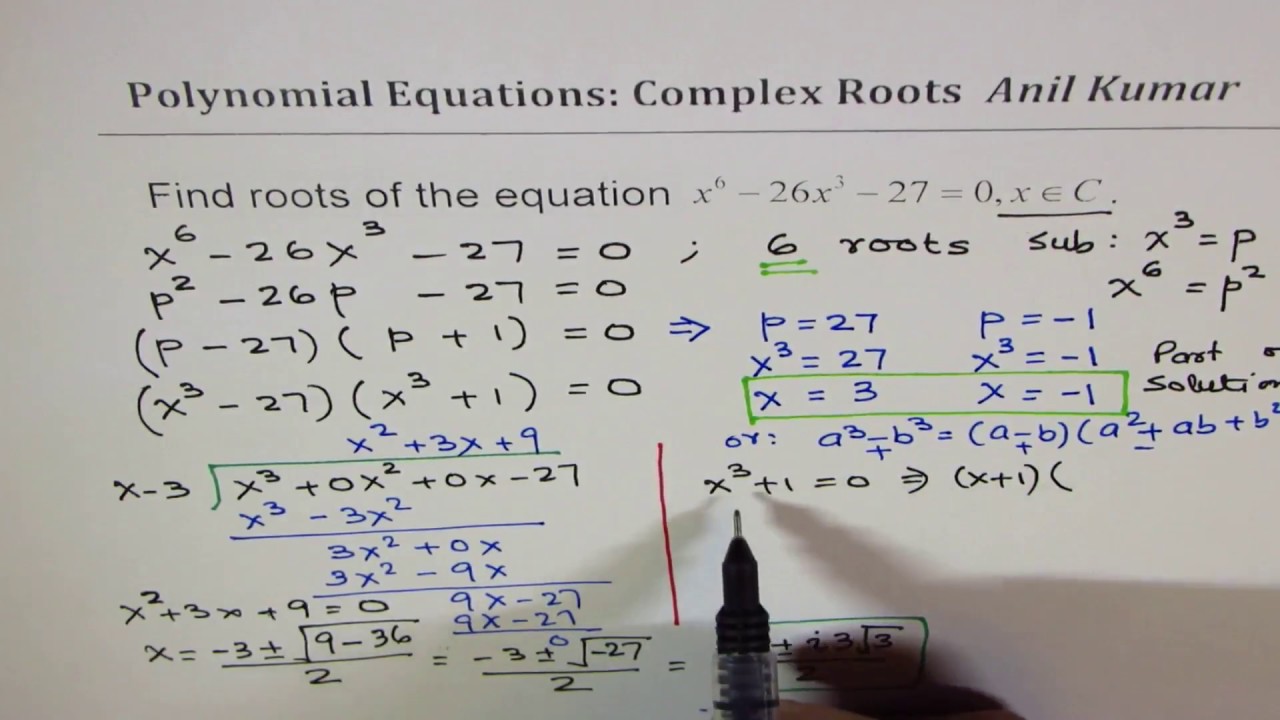 Polynomial Equations: Complex Roots Anil Kumar
Find roots of the equation x⁶ − 26x³ − 27 = 0, x ∈ C.
x⁶ − 26x³ − 27 = 0 ; 6 roots sub: x³ = p
x⁶ = p²
p² − 26p − 27 = 0
(p − 27)(p + 1) = 0 ⇒ p = 27 p = −1
x³ = 27 x³ = −1 Part
(x³ − 27)(x³ + 1) = 0 x = 3 x = −1 Solution
or: a³ ∓ b³ = (a ∓ b)(a² ± ab + b²
x² + 3x + 9
x−3 x³ + 0x² + 0x − 27
x³ + 1 = 0 ⇒ (x+1)(
x³ − 3x²
3x² + 0x
3x² − 9x
x² + 3x + 9 = 0 9x − 27
9x − 27
0
x = −3 ± √9−36 / 2 = −3 ± √−27 / 2 = ± i 3√3 / 2